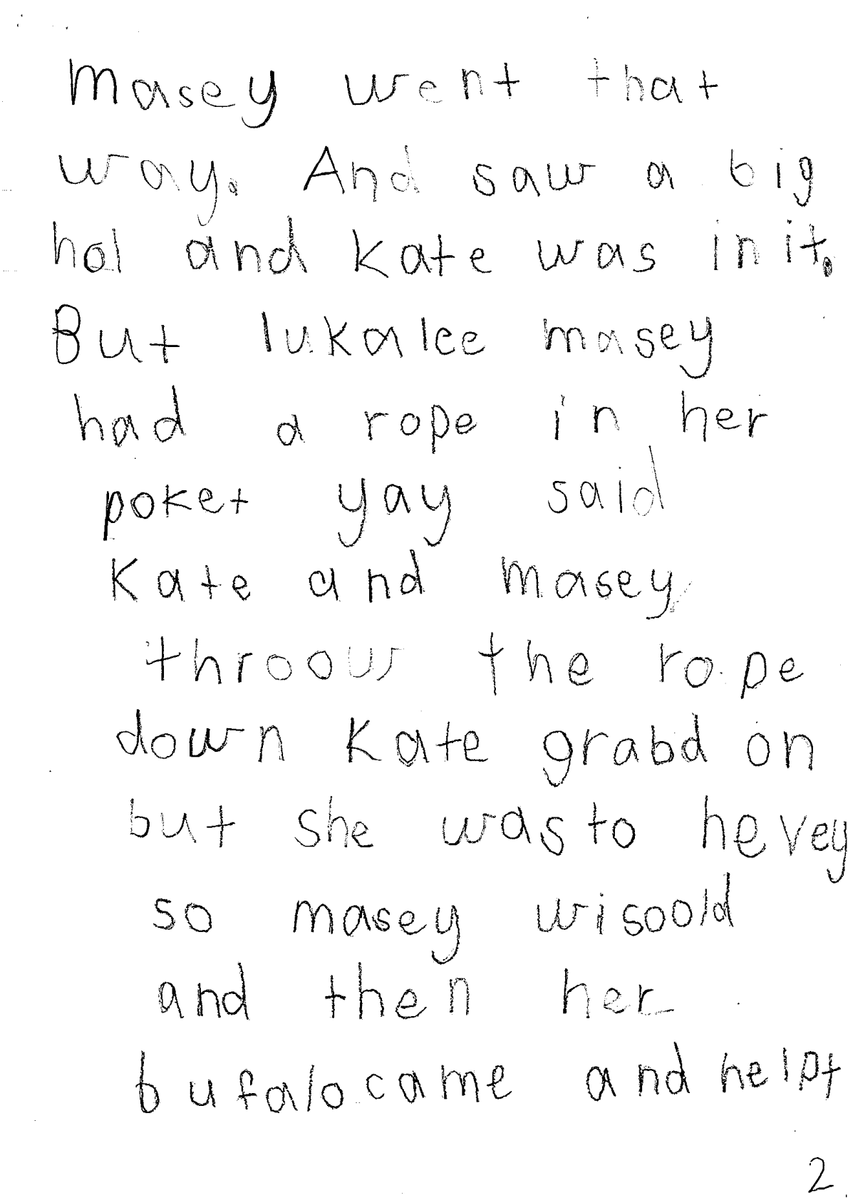 masey went that
way. And saw a big
hol and Kate was in it.
But lukalee masey
had a rope in her
poket yay said
Kate and masey
throouw the rope
down Kate grabd on
but she was to hevey
so masey wisoold
and then her
bufalo came and helpt
2